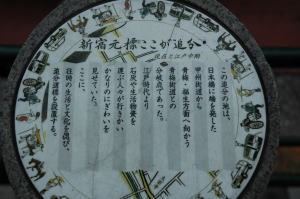 新宿元標ここが追分
この言分の港は、
日本橋に端を発した
甲州街道から
青梅・福生方面へ向かう
青梅街道との
分岐点であった。
江戸時代より
石炭や生活物資を
運ぶ人々が行きかい
かなりのにぎわいを
見せていた。
ここに、
往時の生活と文化を偲び、
追分道標を設置する。